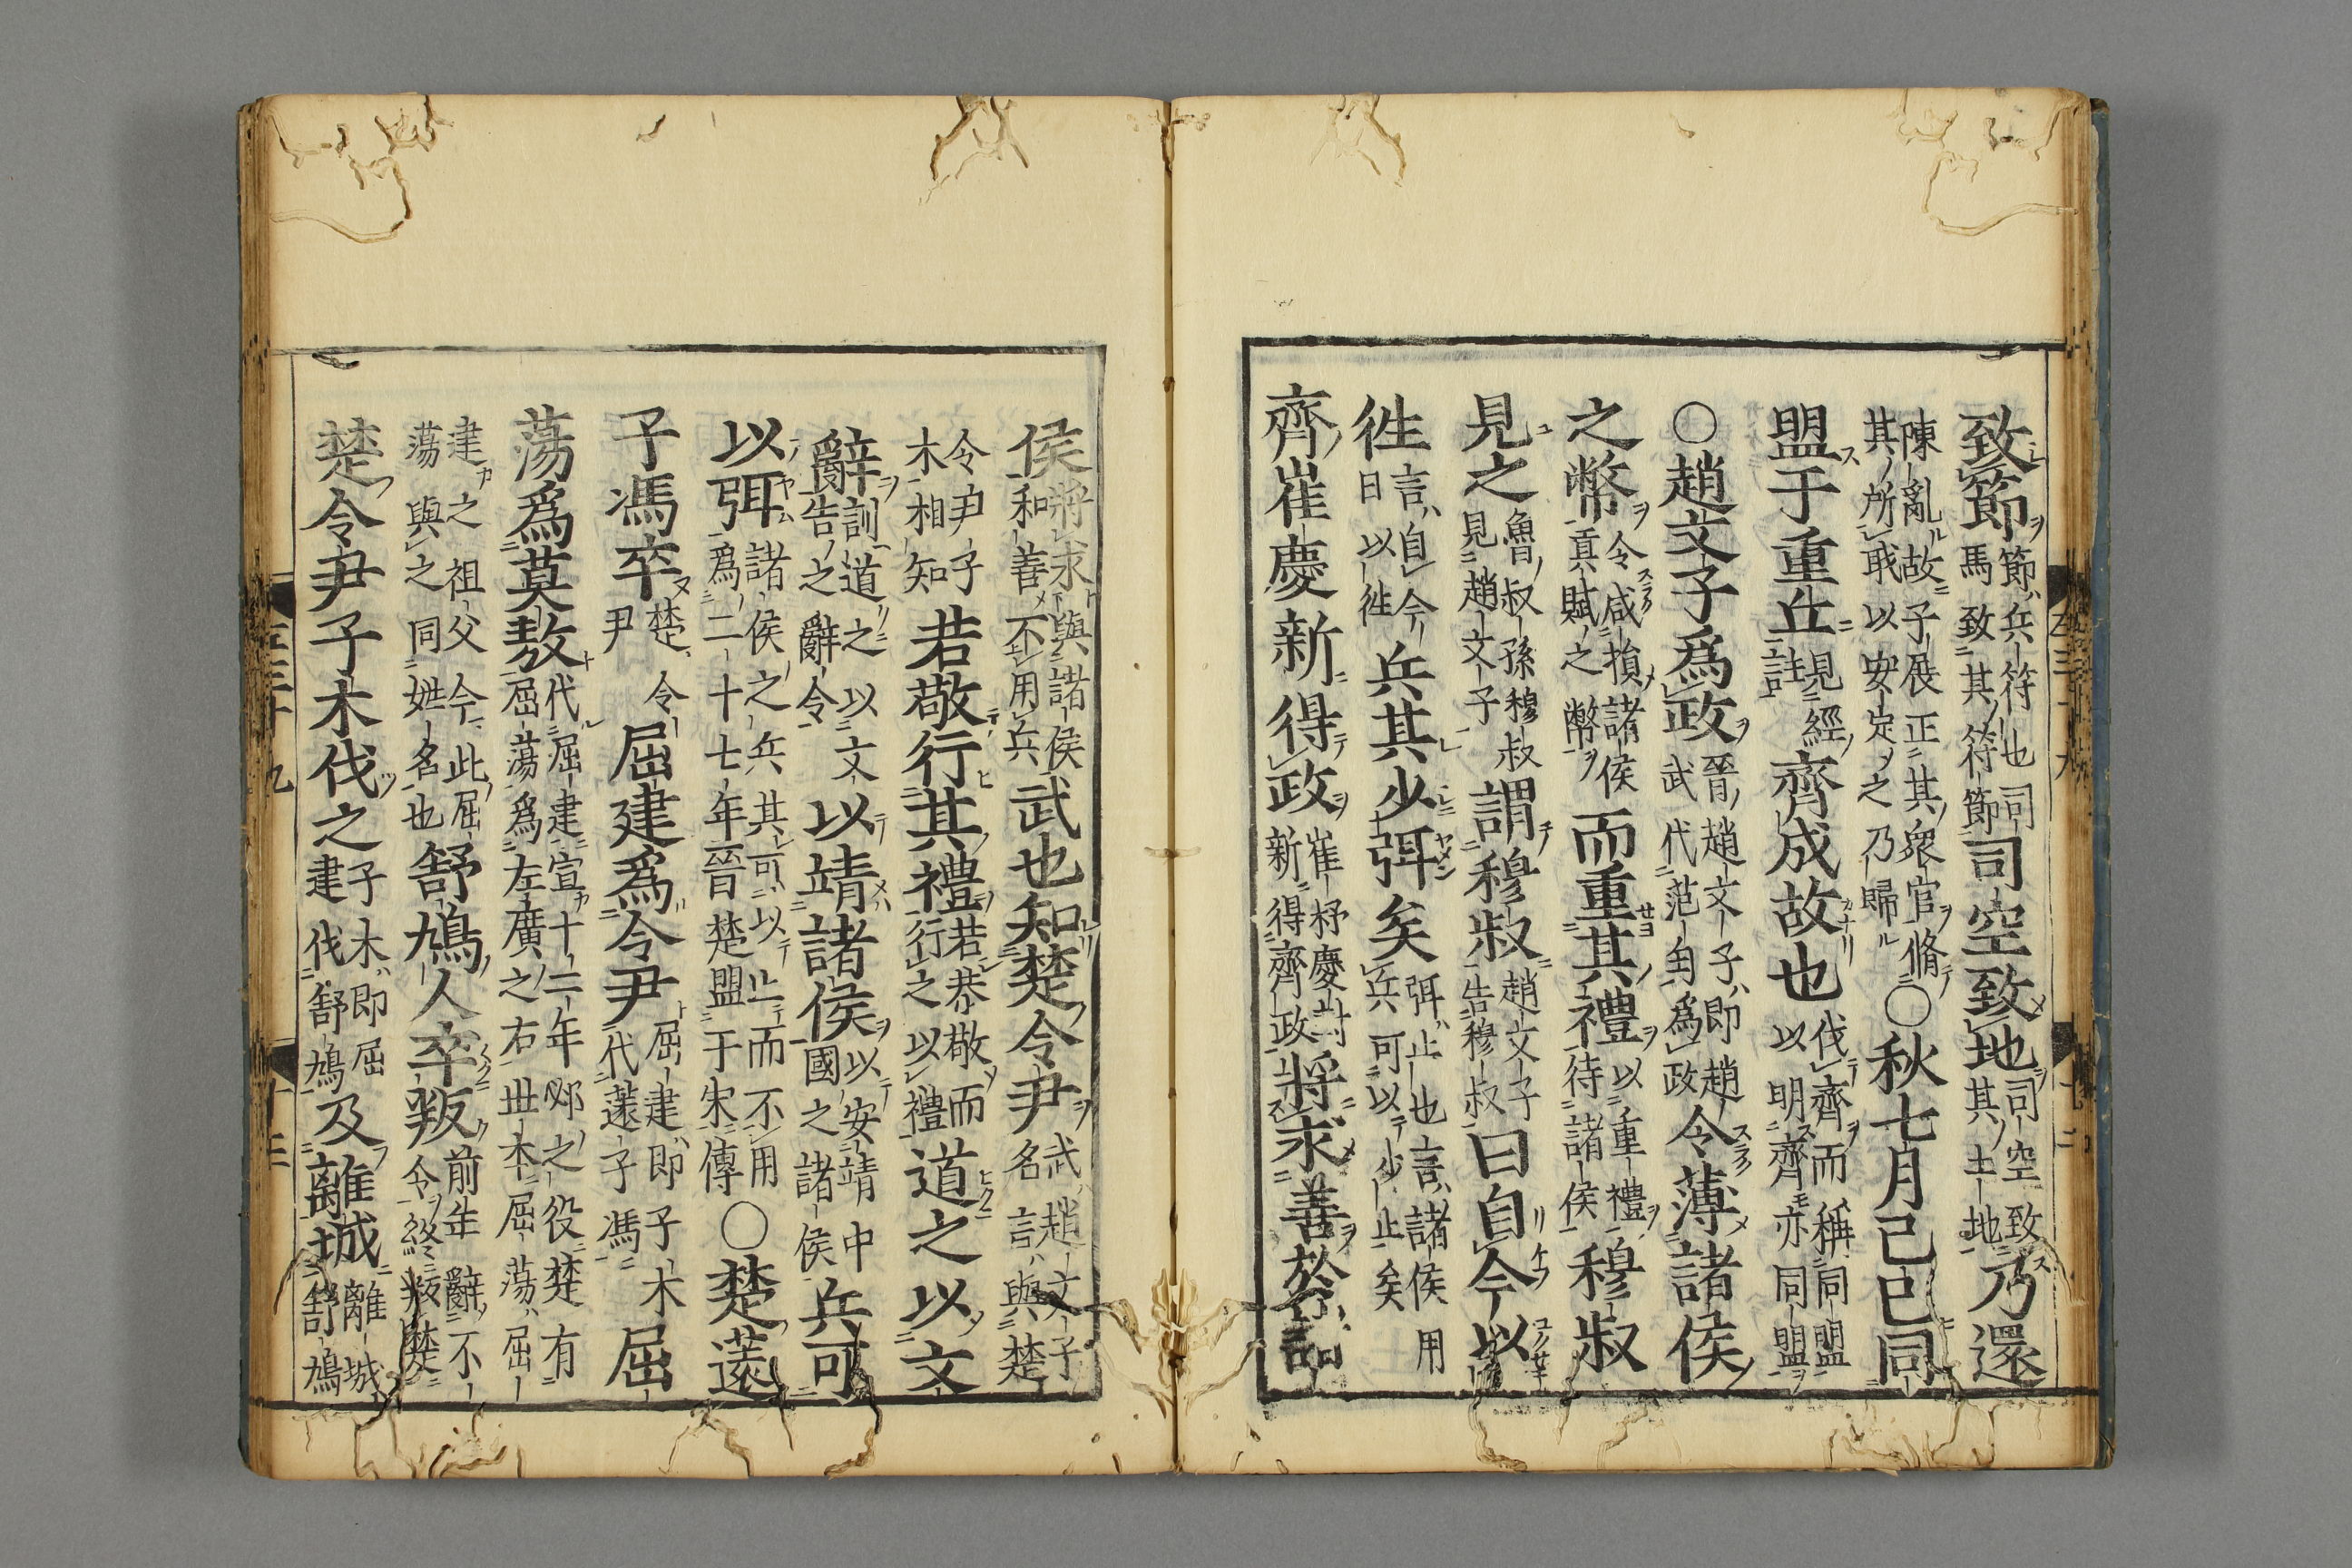 致節節兵符也司馬致其符節司空致地司空致其土地乃還
陳亂故子展正其衆官脩其所職以安定之乃歸○秋七月己巳同
盟于重丘見經註齊成故也伐齊而稱同盟以明齊亦同盟
○趙文子爲政晉趙文子即趙武代范匄爲政令薄諸侯
之幣令咸損諸侯貢賦之幣而重其禮以重禮待諸侯穆叔
見之魯叔孫穆叔見趙文子謂穆叔趙文子告穆叔曰自今以
徃言自今日以徃兵其少弭矣弭止也言諸侯用兵可以少止矣
齊崔慶新得政崔杼慶封新得齊政將求善於諸
侯將求與諸侯和善不用兵武也知楚令尹武趙文子名言與楚
令尹子木相知若敬行其禮若恭敬而行之以禮道之以文
辭訓道之以文告之辭令以靖諸侯以安靖中國之諸侯兵可
以弭諸侯之兵其可以止而不用爲二十七年晉楚盟于宋傳○楚薳
子馮卒楚令尹屈建爲令尹屈建即子木代薳子馮屈
蕩爲莫敖代屈建宣十二年邲之役楚有屈蕩爲左廣之右世本屈蕩屈
建之祖父今此屈蕩與之同姓名也舒鳩人卒叛前年辭不令終叛楚
楚令尹子木伐之子木即屈建伐舒鳩及離城離城舒鳩